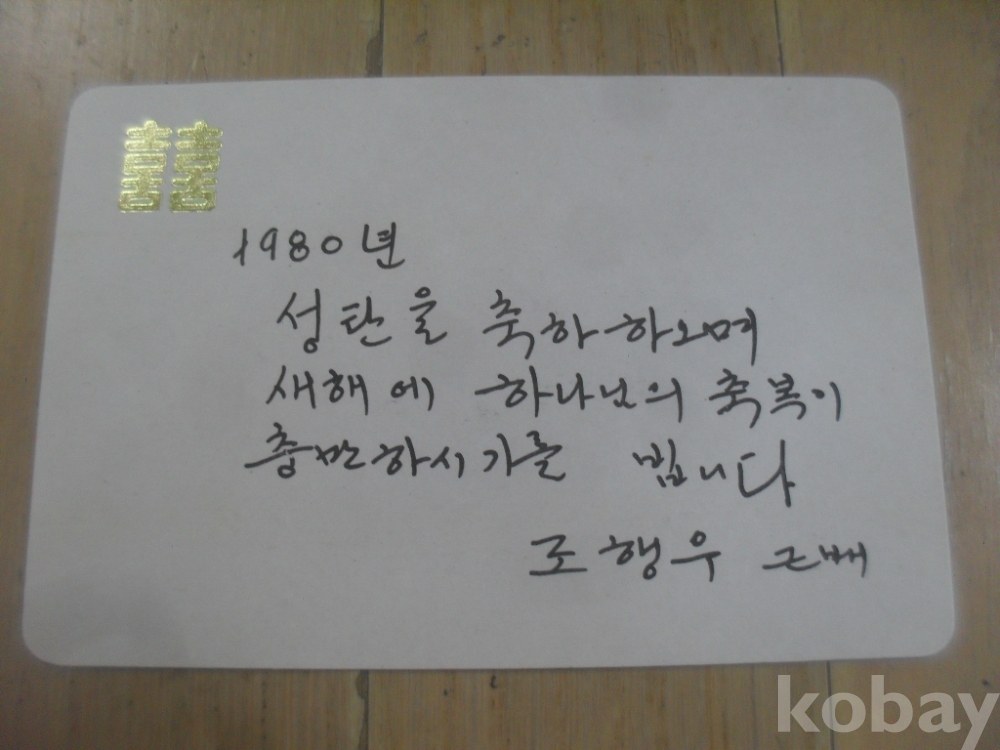 囍
1980년
성탄을 축하하오며
새해에 하나님의 축복이
충만하시기를 빕니다
조행우 근배
kobay